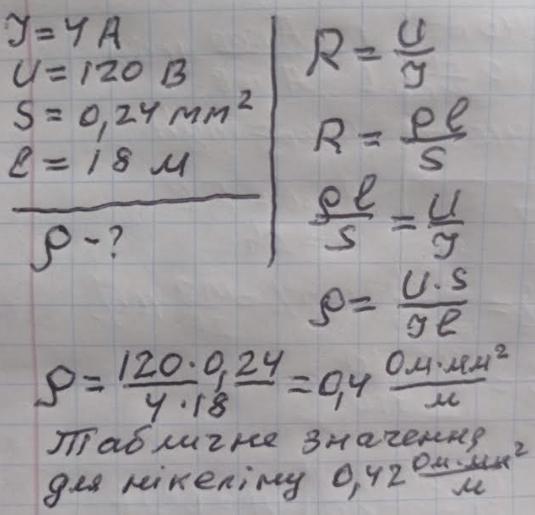 I = 4 А
U = 120 В
S = 0,24 мм²
ℓ = 18 м
ρ - ?
R = U/I
R = ρℓ/S
ρℓ/S = U/I
ρ = U·S/Iℓ
ρ = 120·0,24/4·18 = 0,4 Ом·мм²/м
Табличне значення
для нікеліну 0,42 Ом·мм²/м